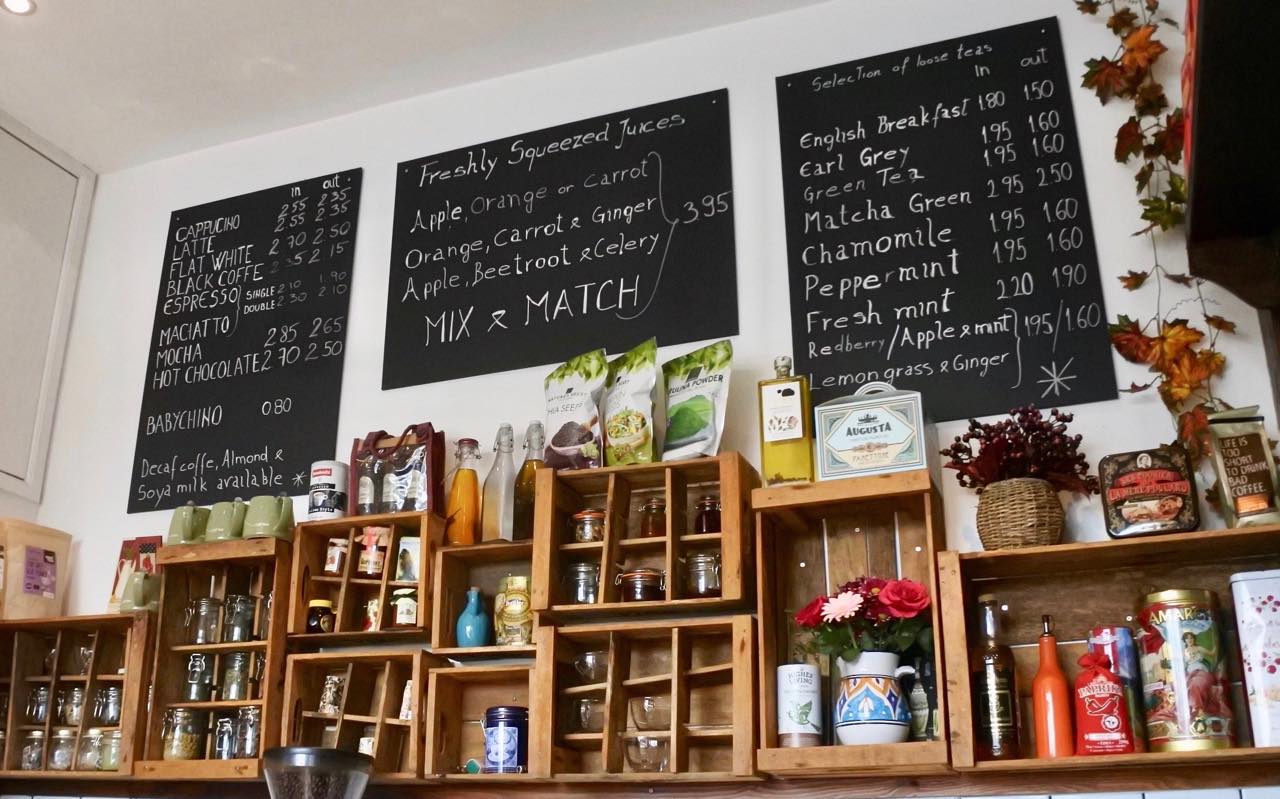 in out
CAPPUCINO 2 55 2 35
LATTE 2 55 2 35
FLAT WHITE 2 70 2 50
BLACK COFFE 2 35 2 15
ESPRESSO SINGLE 2 10 1.90
DOUBLE 2 30 2 10
MACIATTO
MOCHA 2 85 2 65
HOT CHOCOLATE 2 70 2 50
BABYCHINO 0 80
Decaf coffe, Almond &
Soya milk available *
Freshly Squeezed Juices
Apple, Orange or Carrot
Orange, Carrot & Ginger 3.95
Apple, Beetroot & Celery
MIX & MATCH
Selection of loose teas
in out
English Breakfast 1.80 1.50
Earl Grey 1.95 1.60
Green Tea 1.95 1.60
Matcha Green 2.95 2.50
Chamomile 1.95 1.60
Peppermint 1.95 1.60
Fresh mint 2.20 1.90
Redberry/Apple & mint 1.95/1.60
Lemon grass & Ginger
*
CHIA SEEDS
POWDER
AUGUSTA
LIFE IS
TOO
SHORT
TO DRINK
BAD
COFFEE.
HIGHER
LIVING
PAPRIKA
AMAR